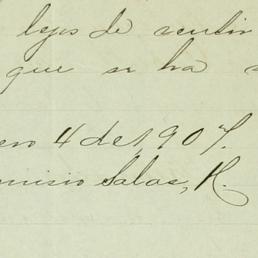 lejos de sentir
que se ha
ero 4 de 1,907.
onisio Salas, H.